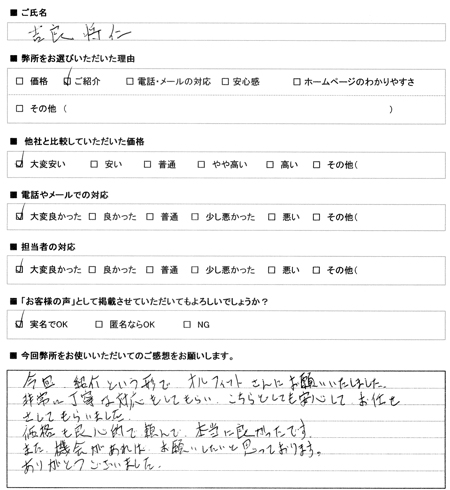 ■ ご氏名
吉良 将仁
■ 弊所をお選びいただいた理由
□ 価格 ☑ ご紹介 □ 電話・メールの対応 □ 安心感 □ ホームページのわかりやすさ
□ その他 （ ）
■ 他社と比較していただいた価格
☑ 大変安い □ 安い □ 普通 □ やや高い □ 高い □ その他（
■ 電話やメールでの対応
☑ 大変良かった □ 良かった □ 普通 □ 少し悪かった □ 悪い □ その他（
■ 担当者の対応
☑ 大変良かった □ 良かった □ 普通 □ 少し悪かった □ 悪い □ その他（
■ 「お客様の声」として掲載させていただいてもよろしいでしょうか？
☑ 実名でOK □ 匿名ならOK □ NG
■ 今回弊所をお使いいただいてのご感想をお願いします。
今回、紹介という形で オルフィットさんにお願いいたしました。
非常に丁寧な対応をしてもらい、こちらとしても安心して お仕を
さしてもらいました。
価格も良心的で頼んで、本当に良かったです。
また、機会があれば、お願いしたいと思っております。
ありがとうございました。